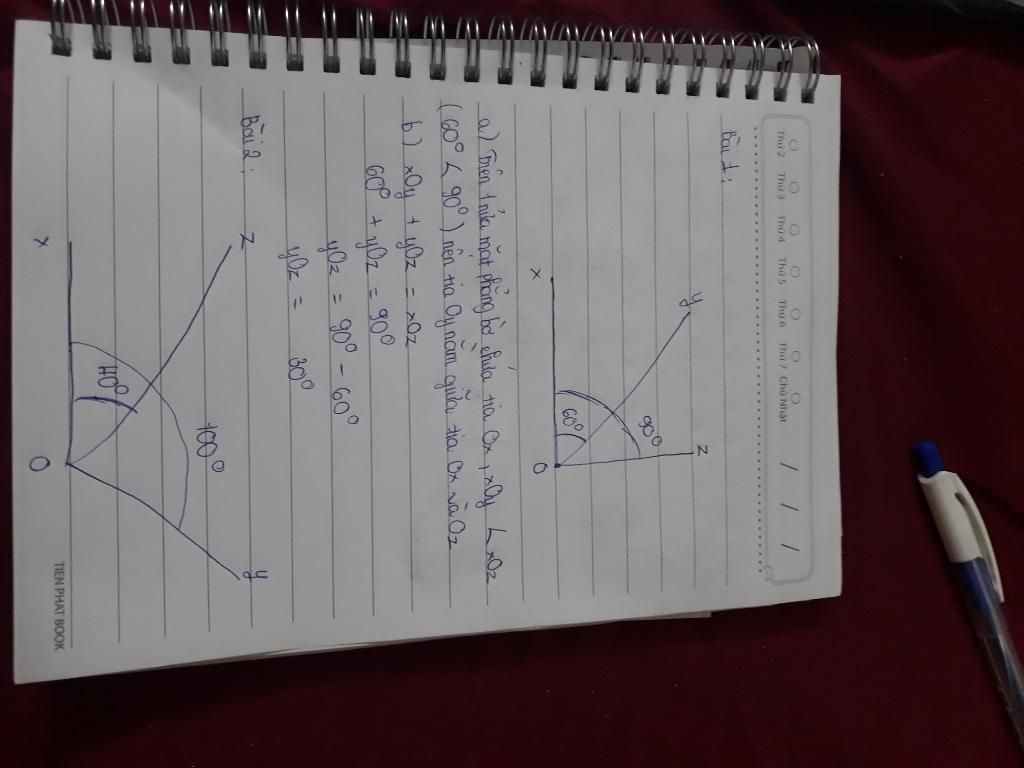 Thứ 2 Thứ 3 Thứ 4 Thứ 5 Thứ 6 Thứ 7 Chủ Nhật / / /
Bài 1:
z
y
90°
60°
x
O
a) Trên 1 nửa mặt phẳng bờ chứa tia Ox, xOy < xOz
(60° < 90°) nên tia Oy nằm giữa tia Ox và Oz
b) xOy + yOz = xOz
60° + yOz = 90°
yOz = 90° - 60°
yOz = 30°
Bài 2:
z
y
100°
40°
x
O
TIEN PHAT BOOK